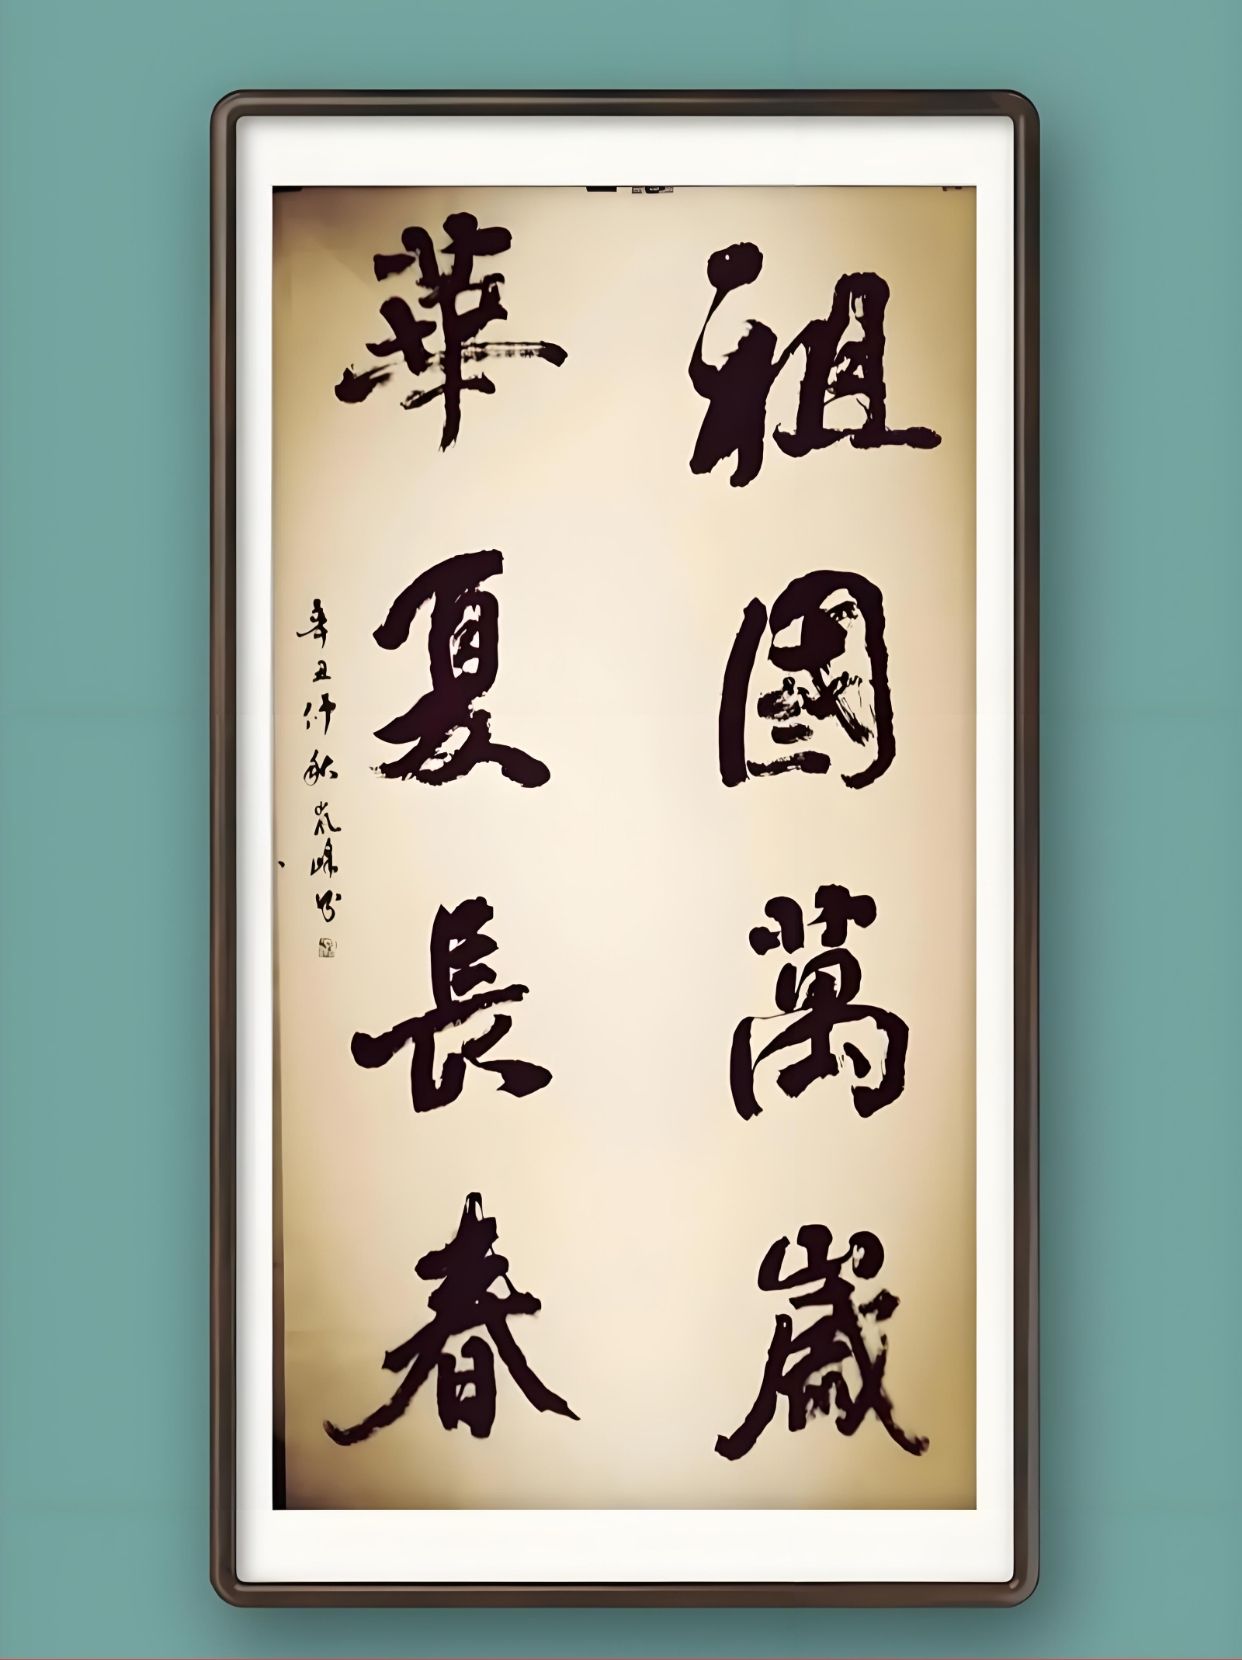 祖國萬歲
華夏長春
辛丑仲秋嵐峰书